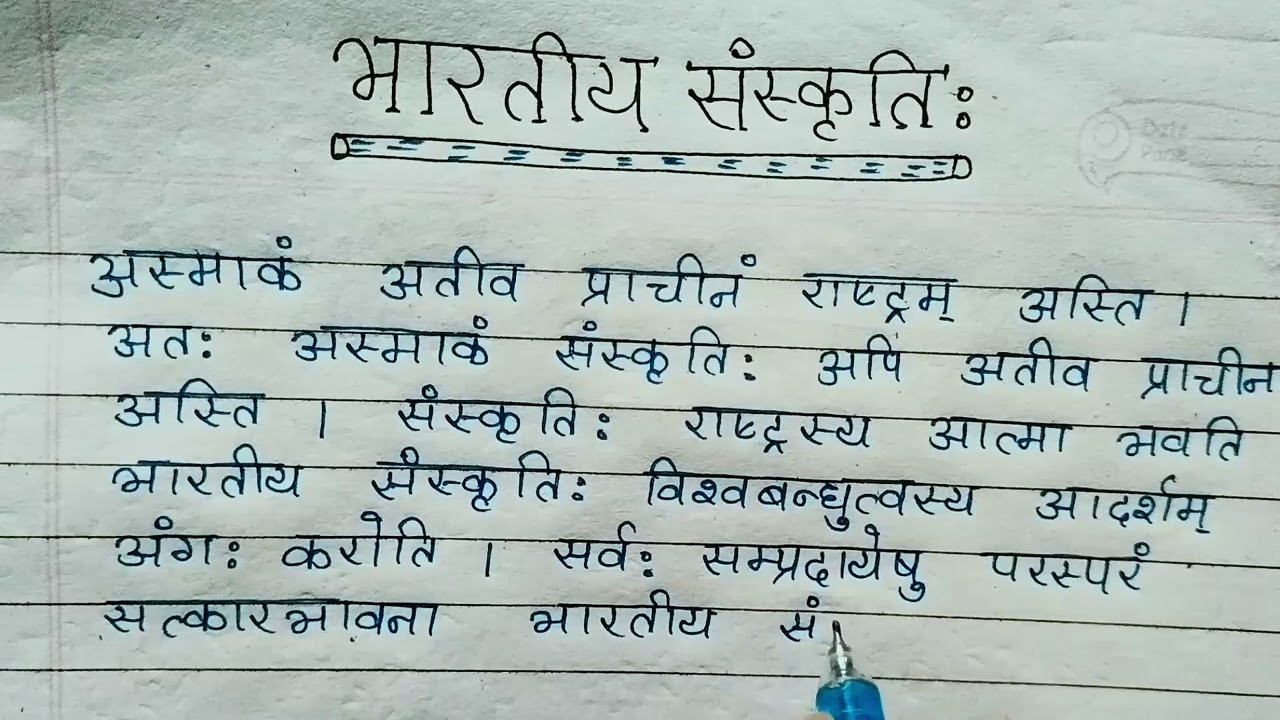 भारतीय संस्कृतिः
अस्माकं अतीव प्राचीनं राष्ट्रम् अस्ति ।
अतः अस्माकं संस्कृतिः अपि अतीव प्राचीन
अस्ति । संस्कृतिः राष्ट्रस्य आत्मा भवति
भारतीय संस्कृतिः विश्वबन्धुत्वस्य आदर्शम्
अंगः करोति । सर्वः सम्प्रदायेषु परस्परं
सत्कारभावना भारतीय सं